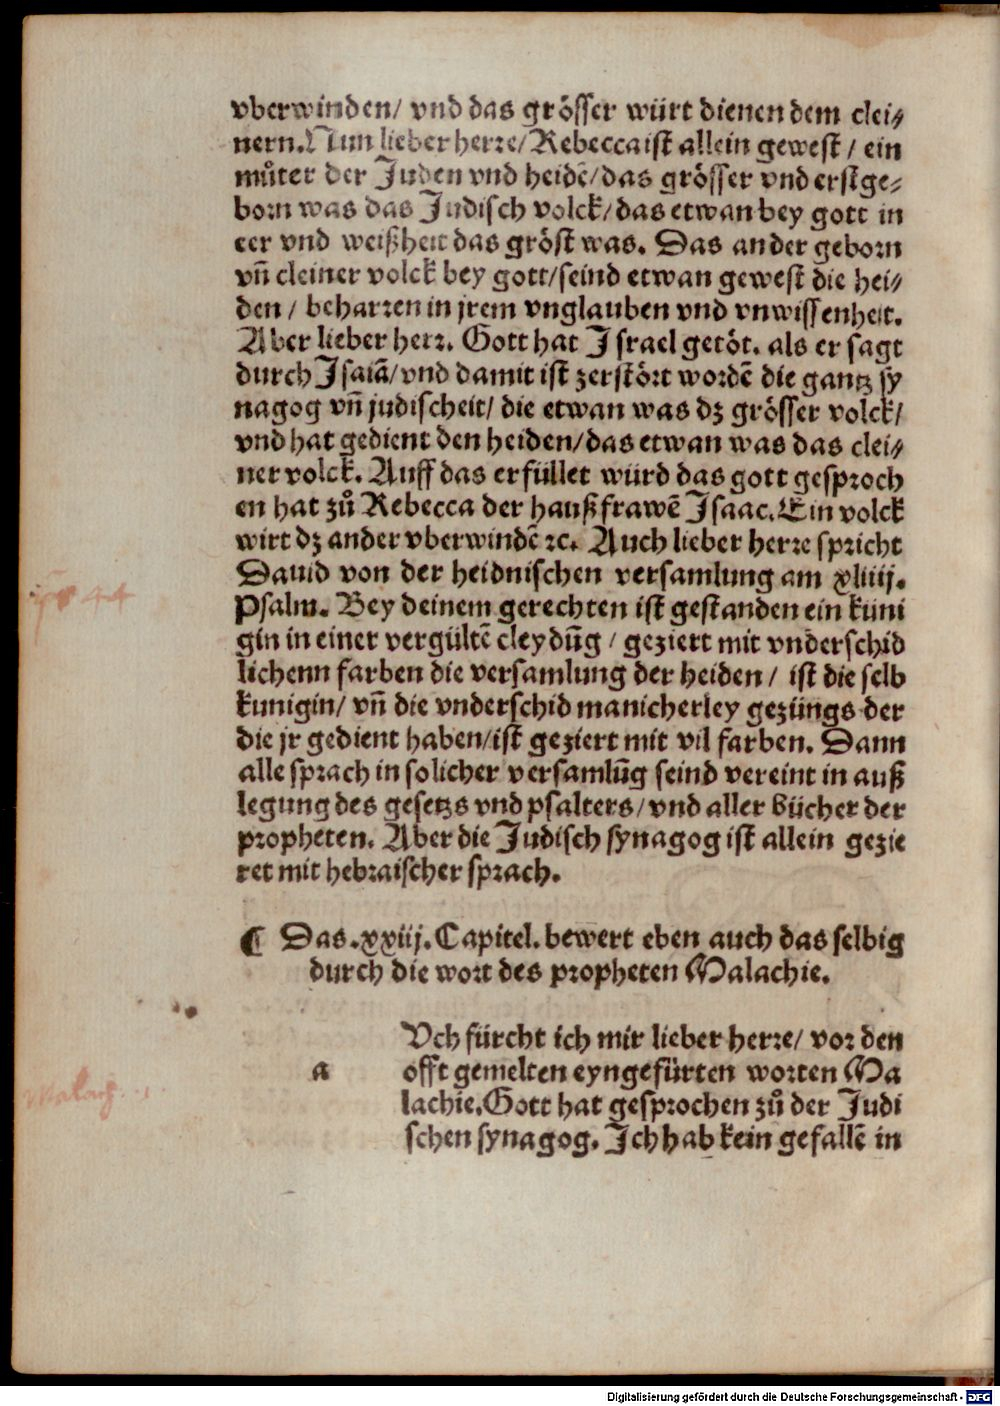 vberwinden/ vnd das grösser würt dienen dem clei⸗
nern. Nun lieber herre/ Rebecca ist allein gewest / ein
můter der Juden vnd heidē/ das grösser vnd erstge⸗
born was das Judisch volck/ das etwan bey gott in
eer vnd weißheit das gröst was. Das ander geborn
vñ cleiner volck bey gott/ seind etwan gewest die hei⸗
den / beharren in jrem vnglauben vnd vnwissenheit.
Aber lieber herr. Gott hat Israel getöt. als er sagt
durch Isaiā/ vnd damit ist zerstört wordē die gantz sy
nagog vñ judischeit/ die etwan was dz grösser volck/
vnd hat gedient den heiden/ das etwan was das clei⸗
ner volck. Auff das erfüllet würd das gott gesproch
en hat zů Rebecca der haußfrawē Isaac. Ein volck
wirt dz ander vberwindē ꝛc. Auch lieber herre spricht
Dauid von der heidnischen versamlung am xliiij.
Psalm. Bey deinem gerechten ist gestanden ein kuni
gin in einer vergültē cleydūg / geziert mit vnderschid
lichenn farben die versamlung der heiden / ist die selb
kunigin/ vñ die vnderschid manicherley gezüngs der
die jr gedient haben/ ist geziert mit vil farben. Dann
alle sprach in solicher versamlūg seind vereint in auß
legung des gesetzs vnd psalters/ vnd aller bücher der
propheten. Aber die Judisch synagog ist allein gezie
ret mit hebraischer sprach.
ps 44
¶ Das .xxiij. Capitel. bewert eben auch das selbig
durch die wort des propheten Malachie.
a
Vch fürcht ich mir lieber herre/ vor den
offt gemelten eyngefürten worten Ma
lachie. Gott hat gesprochen zů der Judi
schen synagog. Ich hab kein gefallē in
Malach.
Digitalisierung gefördert durch die Deutsche Forschungsgemeinschaft - DFG